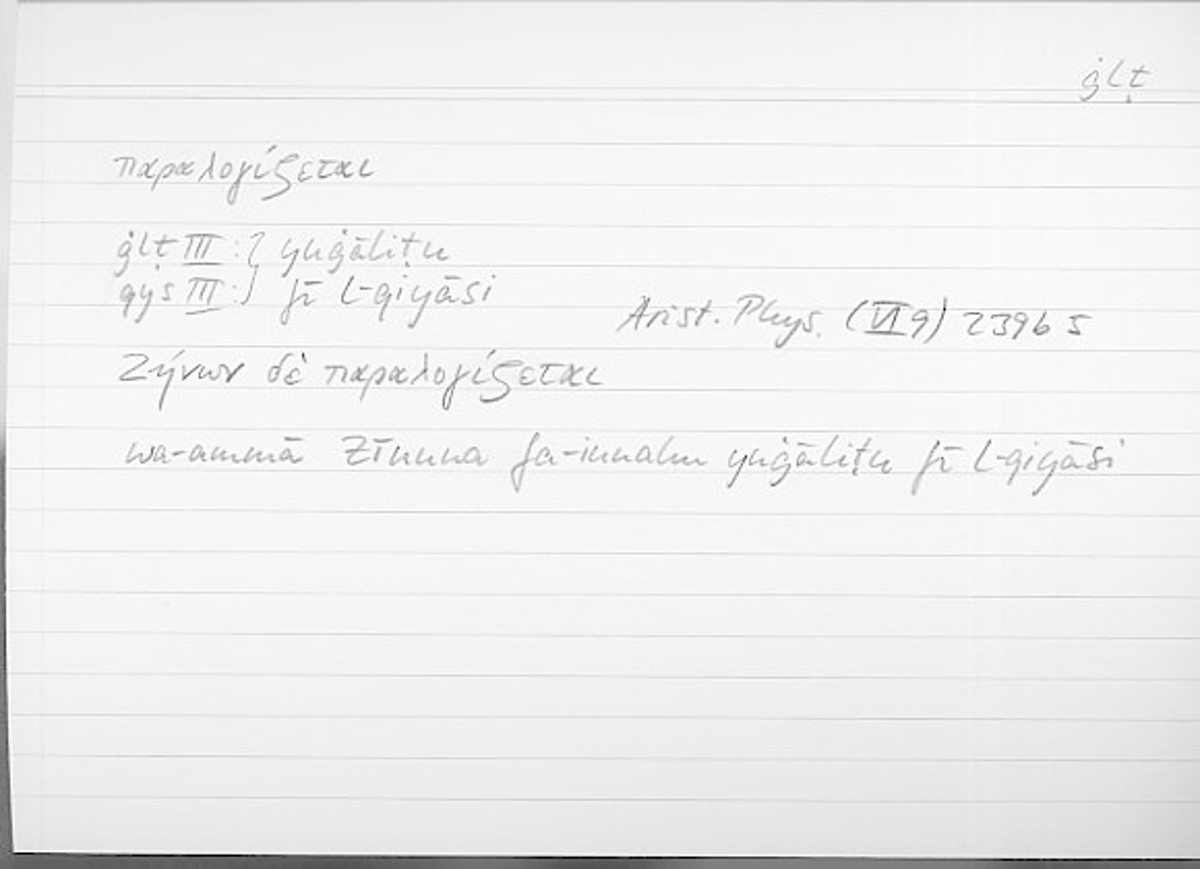 ġlṭ
παραλογίζεται
ġlṭ III : } yuġāliṭu
qys III : } fī l-qiyāsi
Arist. Phys. (VI 9) 239b5
Ζήνων δὲ παραλογίζεται
wa-ammā Zīnuna fa-innahu yuġāliṭu fī l-qiyāsi